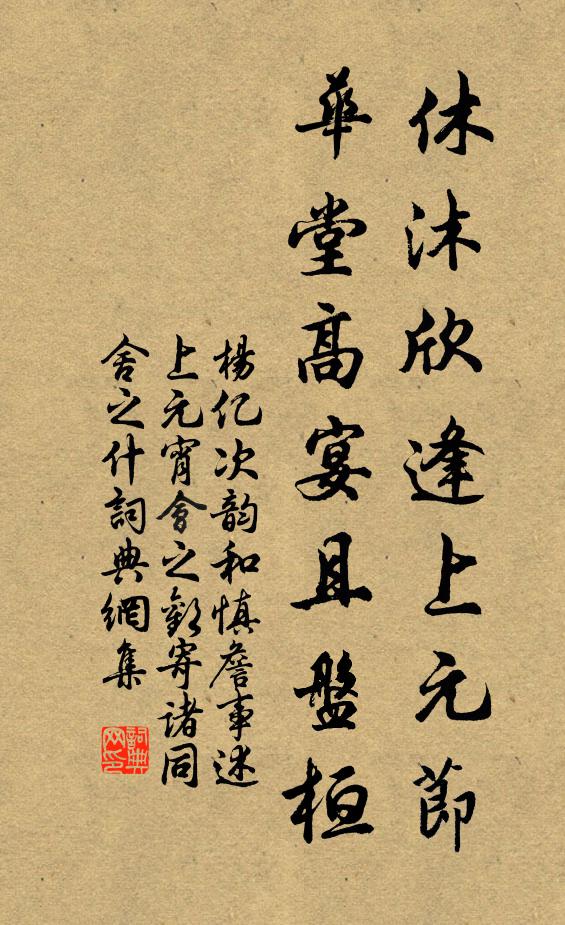 休沐欣逢上元節
華堂高宴且盤桓
楊亿次韵和慎詹事述
上元宵會之歡寄诸同
舍之什詞典網集
詞典网印